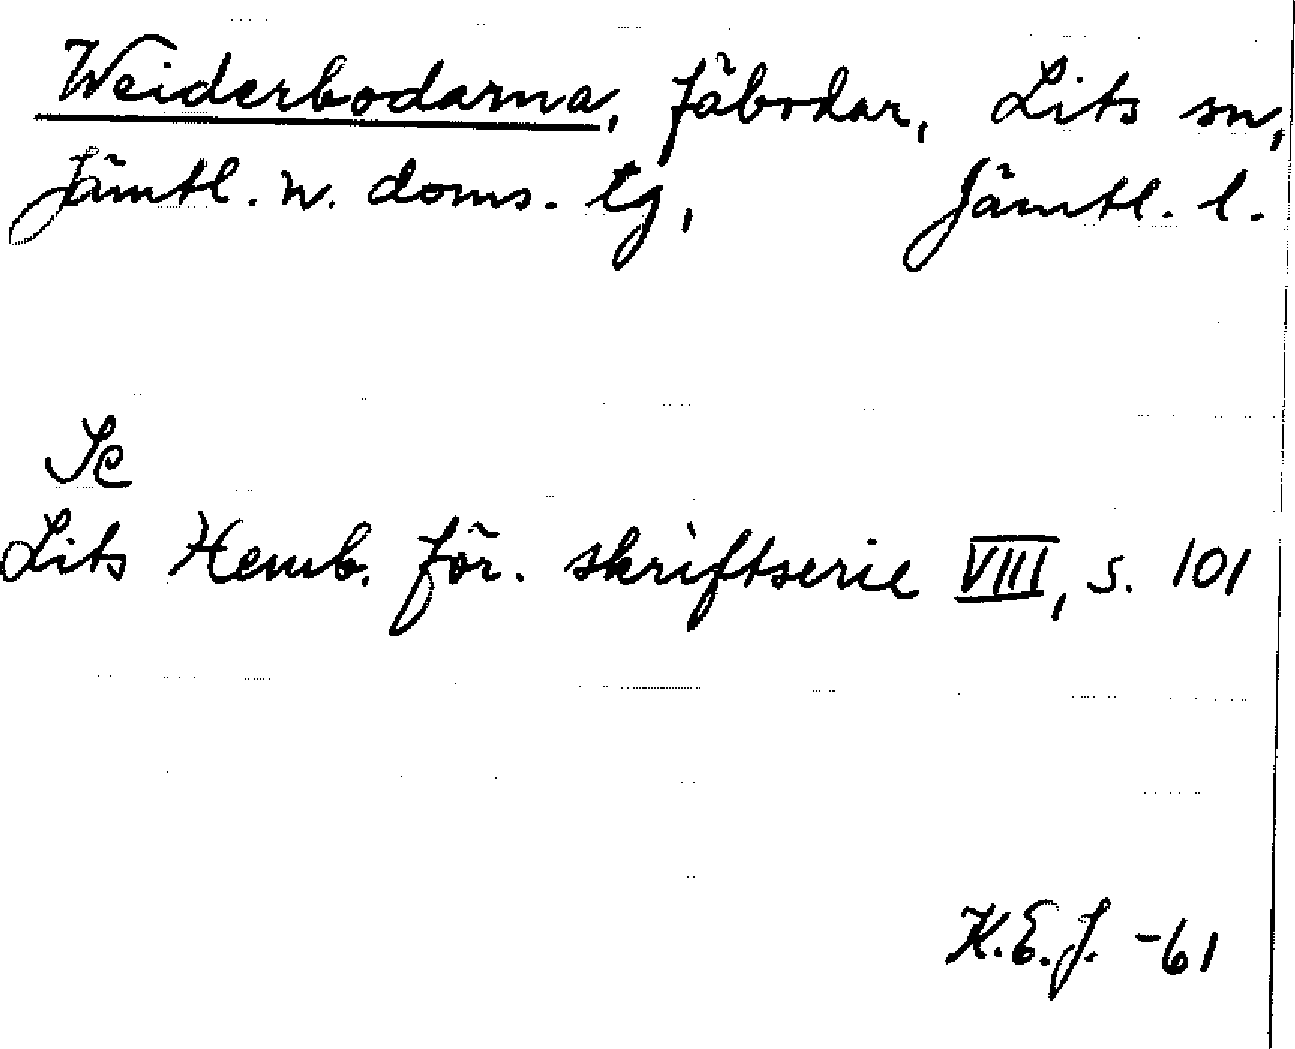 Weiderbodarna, fäbodar, Lits sn,
Jämtl. n. doms. tg, Jämtl. l.
Se
Lits Hemb. för. skriftserie VIII, s. 101
K.E.J. -61